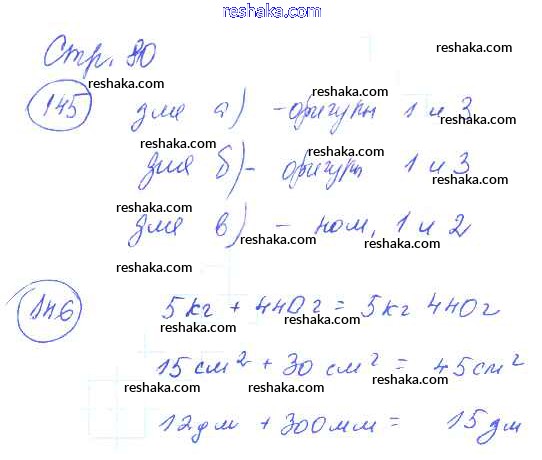 reshaka.com
Стр. 80
reshaka.com
reshaka.com
145 для а) - фигуры 1 и 3
reshaka.com
reshaka.com
для б) - фигуры 1 и 3
reshaka.com
reshaka.com
для в) - ном. 1 и 2
reshaka.com
reshaka.com
reshaka.com
146 5кг + 440г = 5кг 440г
reshaka.com
reshaka.com
15 см² + 30 см² = 45см²
reshaka.com
reshaka.com
reshaka.com
12дм + 300мм = 15дм
reshaka.com
reshaka.com